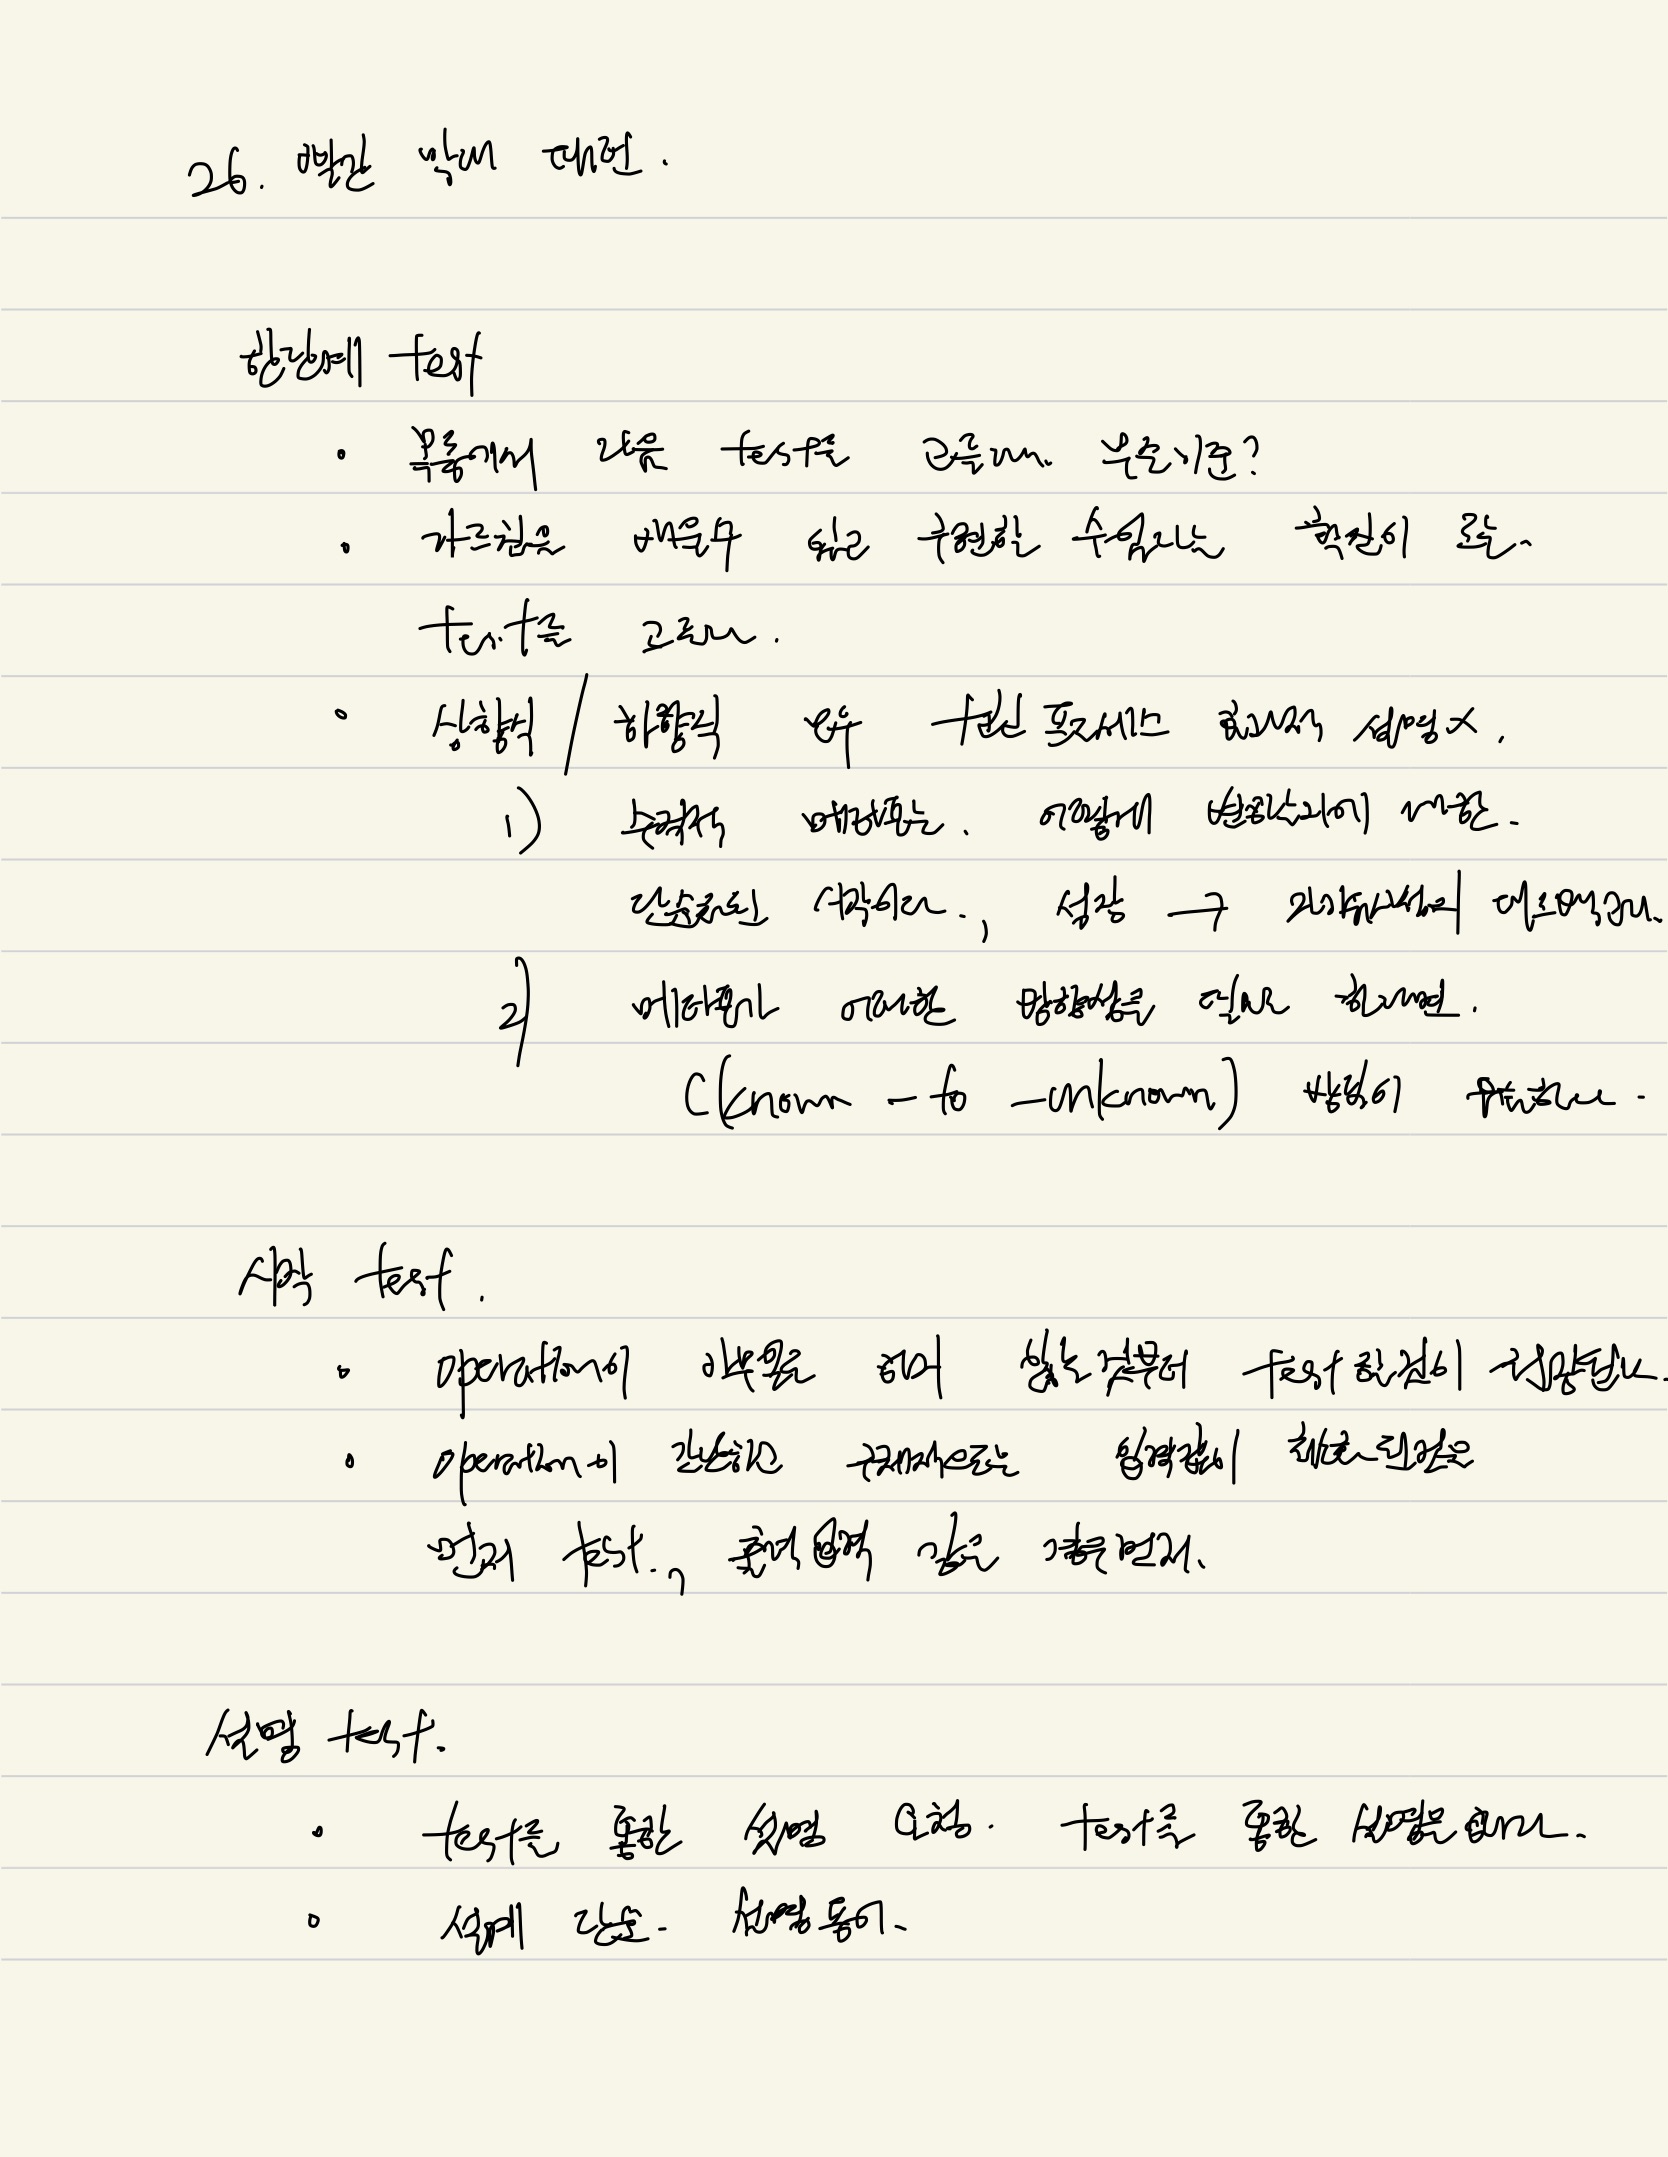 26. 빨간 막대 패턴.
한단계 test
• 목록에서 다음 test를 고를때. 무슨기준?
• 가르침을 배울수 있고 구현할 수 있다는 확신이 드는.
test를 고른다.
• 상향식 / 하향식 모두 프로세스 효과적 설명 X.
1) 수직적 메타포는. 어떻게 변하는지에 대한.
단순화된 시각이다., 성장
2) 메타포가 이러한 방향성을 필요로 한다면.
(known - to - unknown) 방법이 유용하다.
시작 test.
• operation이 아무일도 하지 않는것부터 test 한것이 적합하다.
• operation이 간단하고 구체적으로는 입력값이 최소 된것을
먼저 test., 출력 입력 같은 것을 먼저.
설명 test.
• test를 통한 설명 요청. test를 통한 설명을 한다.
• 설계 단순. 설명 용이.